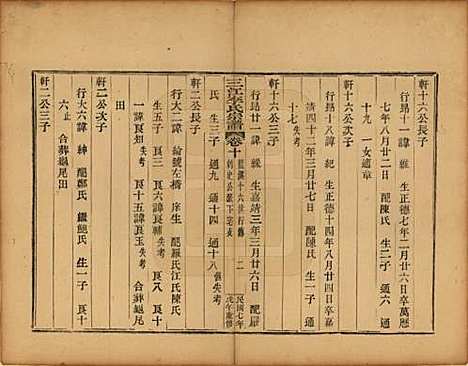 軒十六公長子
行昂六諱 生正德七年二月廿六卒萬歷
七年八月廿二日 配陳氏 生二子 通六
十九 一女適章
軒十六公次子
行昂十八諱 生正德十四年八月廿四卒嘉
靖四十二年三月廿七日 配陳氏 生一子 通
十七 失考
軒十六公三子
行昂廿一諱 生嘉靖三年三月廿六日 配嚴
氏 生三子 通九 通十四 通十八俱失考
三江李氏宗譜
卷十
二
民國七年
戊午重修
軒二公次子
行大二諱 綸號左橋 庠生 配嚴氏江氏陳氏
生五子 良三 良六諱良輔失考 良八
一諱良知失考 良十三諱良玉失考 合葬龜尾
田
軒二公三子
行大六諱 紳 配鄭氏 繼鮑氏 生一子 良十
六止 合葬龜尾田